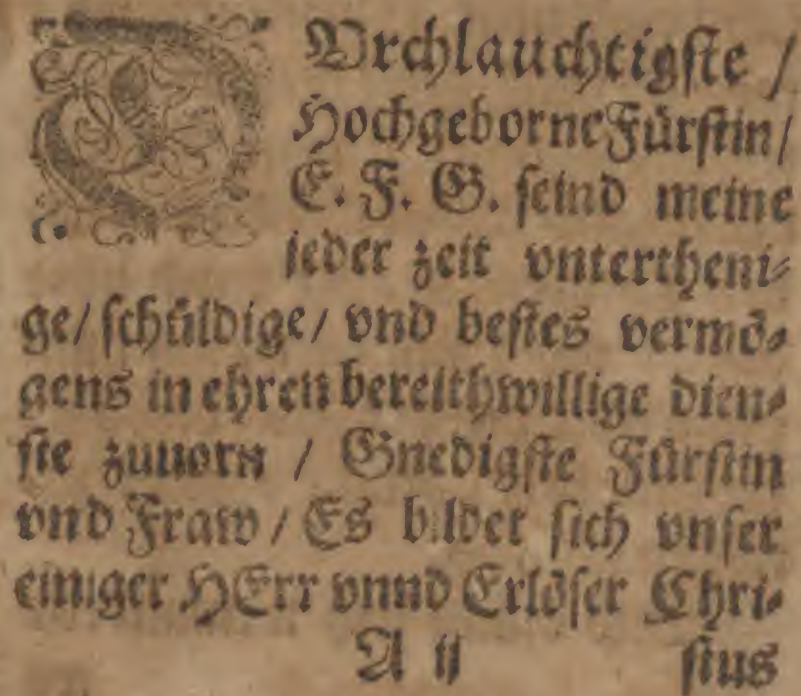 DVrchlauchtigſte /
HochgeborneFuͤrſtin/
E. F. G. ſeind meine
jeder zeit vntertheni⸗
ge/ ſchuͤldige/ vnd beſtes vermoͤ⸗
gens in ehren bereithwillige dien⸗
ſte zuuorn / Gnedigſte Fuͤrſtin
vnd Fraw / Es bildet ſich vnſer
einiger HErr vnnd Erloͤſer Chri⸗
A ij ſtus